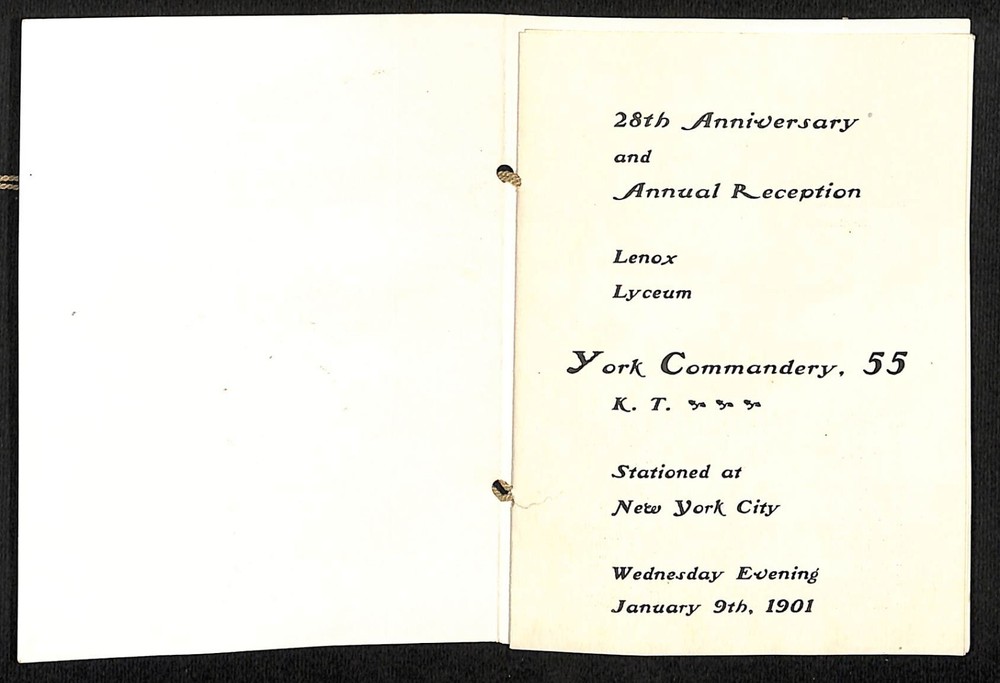 28th Anniversary
and
Annual Reception
Lenox
Lyceum
York Commandery, 55
K. T.
Stationed at
New York City
Wednesday Evening
January 9th, 1901